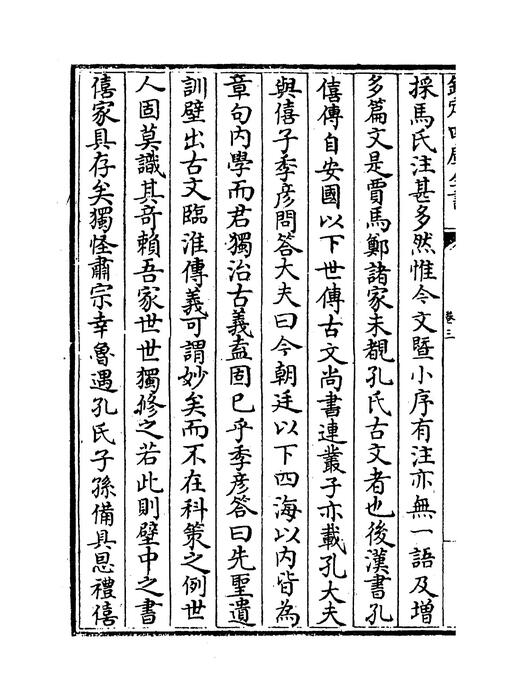 欽定四庫全書
卷三
採馬氏注甚多然惟今文暨小序有注亦無一語及增
多篇文是賈馬鄭諸家未覩孔氏古文者也後漢書孔
僖傳自安國以下世傳古文尚書連叢子亦載孔大夫
與僖子季彦問答大夫曰今朝廷以下四海以内皆為
章句内學而君獨治古義盍固已乎季彦答曰先聖遺
訓壁出古文臨淮傳義可謂妙矣而不在科策之例世
人固莫識其奇賴吾家世世獨修之若此則壁中之書
僖家具存矣獨怪肅宗幸魯遇孔氏子孫備具恩禮僖